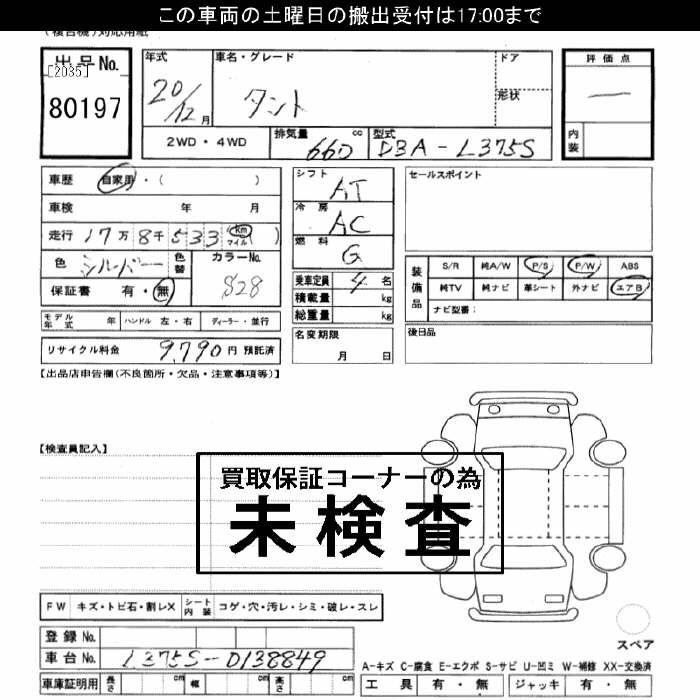 この車両の土曜日の搬出受付は17:00まで
(複合機)対応用紙
出品No.
[2035]
80197
年式
20/12月
車名・グレード
タント
ドア
形状
2WD・4WD
排気量
660
cc
型式
DBA-L375S
評価点
内装
車歴 自家用・( )
車検 年 月
走行 17万8千533 Km マイル ( )
色 シルバー
色替
カラーNo.
S28
保証書 有・無
モデル年式 年 ハンドル 左・右 ディーラー・並行
リサイクル料金 9,790円 預託済
シフト AT
冷房 AC
燃料 G
乗車定員 4名
積載量 kg
総重量 kg
名変期限
月 日
セールスポイント
装備品
S/R 純A/W P/S P/W ABS
純TV 純ナビ 革シート 外ナビ エアB
ナビ型番:
後日品
【出品店申告欄(不良箇所・欠品・注意事項等)】
【検査員記入】
買取保証コーナーの為
未検査
FW キズ・トビ石・割レX シート内装 コゲ・穴・汚レ・シミ・破レ・スレ
登録No.
車台No. L375S-0138849
車庫証明用 長さ cm 幅 cm 高さ cm
スペア
A-キズ C-腐食 E-エクボ S-サビ U-凹ミ W-補修 XX-交換済
工具 有・無 ジャッキ 有・無